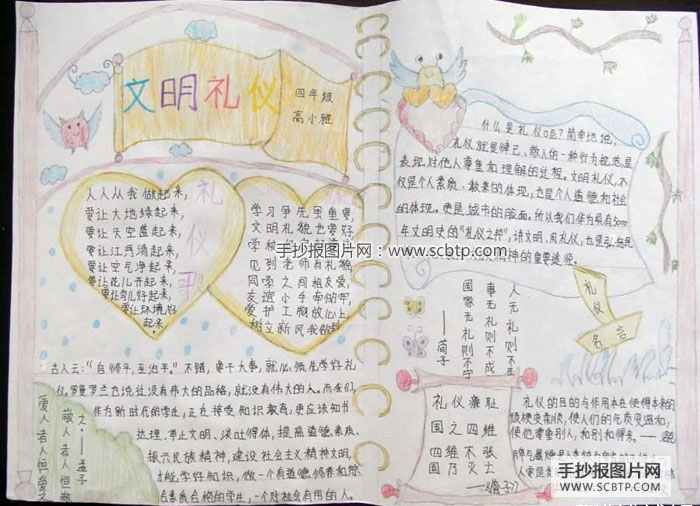 文明礼仪
四年级
高小雅
人人从我做起来,
要让大地绿起来,
要让天空蓝起来,
要让江河清起来,
要让空气净起来,
要让花儿开起来,
要让鸟儿好起来,
要让环境好
起来,
礼
仪
歌
学习争先虽重要,
文明礼貌也要好,
学校
见到老师有礼貌,
同学之间相友爱,
友谊小手牵的牢,
爱护工物放心上,
树立新风我做到
古人云:“自修平,至治平。”不错,要干大事,就必须先学好礼
仪,罗曼罗兰也说过:没有伟大的品格,就没有伟大的人。而我们,
作为新时代的学生,正在接受知识教育,更应该知书
达理,举止文明、谈吐得体,提高道德素质、
振兴民族精神,建设社会主义精神文明,
才能学好知识,做一个有道德修养和综
合素质合格的学生,一个对社会有用的人。
爱人者人恒爱之
敬人者人恒敬
之·——孟子
什么是礼仪呢?简单地说,
礼仪就是律己、敬人的一种行为规范,是
表现对他人尊重和理解的过程。文明礼仪,不
仅是个人素质、教养的体现,也是个人道德和社会
的体现。更是城市的脸面,所以我们作为具有5000
年文明史的“礼仪之邦”,讲文明、用礼仪,也是弘扬民
精神的重要途径。
人无礼则不生
事无礼则不成
国家无礼则不宁
——荀子
礼仪
名言
礼仪廉耻
国之四维
四维不张
国乃灭亡
——管子
礼仪的目的与作用本在使得本来的
顽梗变柔顺,使人们的气质变温和,
使他尊重别人,和别和得来。
手抄报图片网:www.scbtp.com
手抄报图片网
WWW.SCBTP.COM